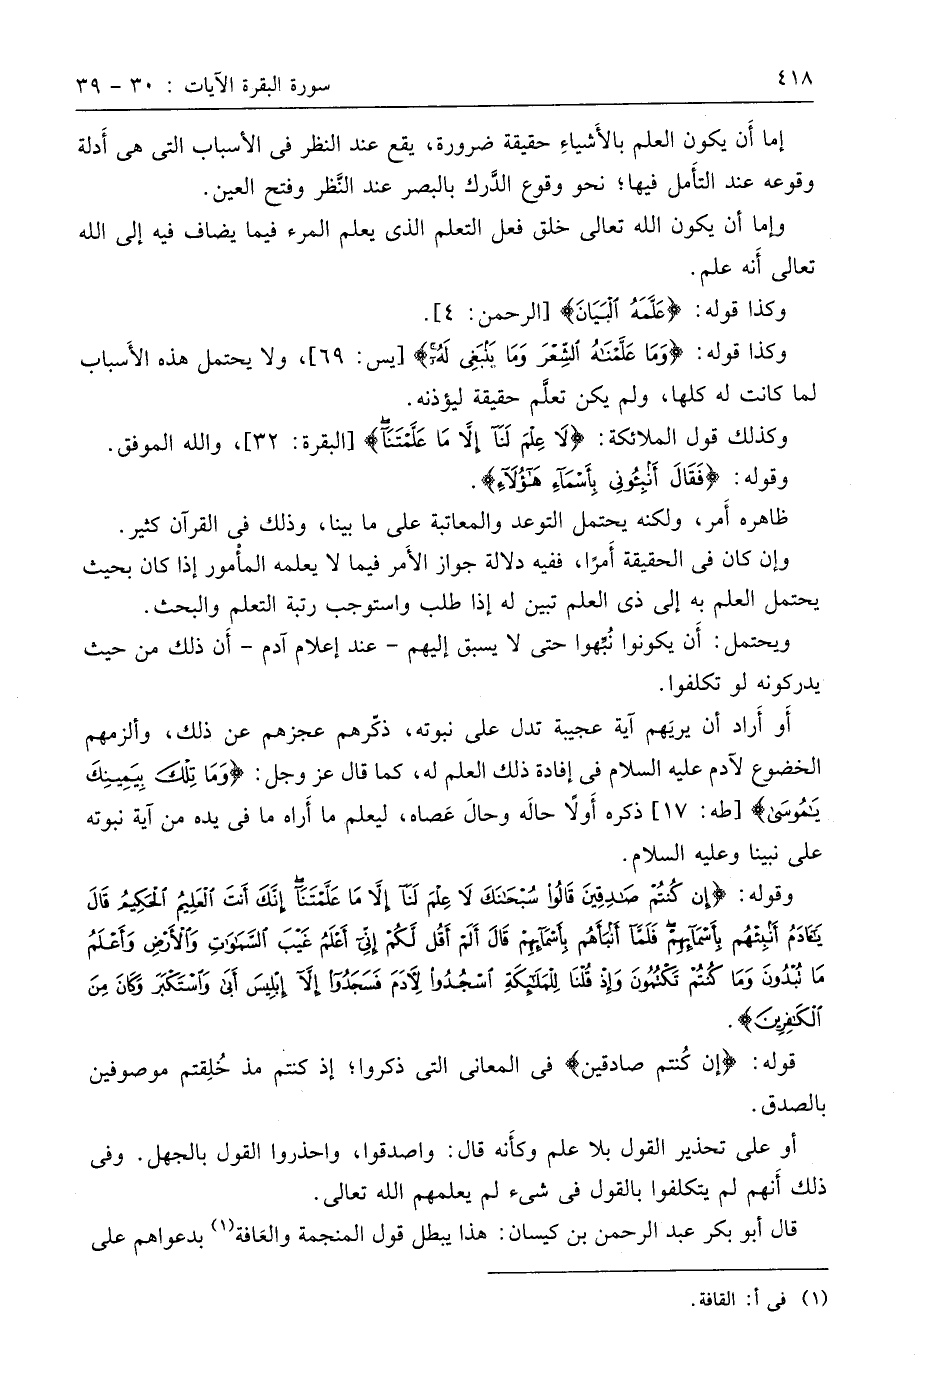 ٤١٨ سورة البقرة الآيات : ٣٠ - ٣٩
إما أَن يكون العلم بالأَشياءِ حقيقة ضرورة، يقع عند النظر فى الأسباب التى هى أَدلة
وقوعه عند التأَمل فيها؛ نحو وقوع الدَّرك بالبصر عند النَّظر وفتح العين.
وإما أن يكون الله تعالى خلق فعل التعلم الذى يعلم المرء فيما يضاف فيه إلى الله
تعالى أَنه علم.
وكذا قوله: ﴿عَلَّمَهُ ٱلْبَيَانَ﴾ [الرحمن: ٤].
وكذا قوله: ﴿وَمَا عَلَّمْنَـٰهُ ٱلشِّعْرَ وَمَا يَنۢبَغِى لَهُۥٓ﴾ [يس: ٦٩]، ولا يحتمل هذه الأَسباب
لما كانت له كلها، ولم يكن تعلَّم حقيقة ليؤذنه.
وكذلك قول الملائكة: ﴿لَا عِلْمَ لَنَآ إِلَّا مَا عَلَّمْتَنَآ﴾ [البقرة: ٣٢]، والله الموفق.
وقوله: ﴿فَقَالَ أَنۢبِـُٔونِى بِأَسْمَآءِ هَـٰٓؤُلَآءِ﴾.
ظاهره أَمر، ولكنه يحتمل التوعد والمعاتبة على ما بينا، وذلك فى القرآن كثير.
وإن كان فى الحقيقة أَمرًا، ففيه دلالة جواز الأَمر فيما لا يعلمه المأْمور إذا كان بحيث
يحتمل العلم به إلى ذى العلم تبين له إذا طلب واستوجب رتبة التعلم والبحث.
ويحتمل: أَن يكونوا نُبِّهوا حتى لا يسبق إليهم - عند إعلام آدم - أَن ذلك من حيث
يدركونه لو تكلفوا.
أَو أَراد أن يريَهم آية عجيبة تدل على نبوته، ذكّرهم عجزهم عن ذلك، وألزمهم
الخضوع لآدم عليه السلام فى إفادة ذلك العلم له، كما قال عز وجل: ﴿وَمَا تِلْكَ بِيَمِينِكَ
يَـٰمُوسَىٰ﴾ [طه: ١٧] ذكره أَولًا حالَه وحالَ عَصاه، ليعلم ما أَراه ما فى يده من آية نبوته
على نبينا وعليه السلام.
وقوله: ﴿إِن كُنتُمْ صَـٰدِقِينَ قَالُوا۟ سُبْحَـٰنَكَ لَا عِلْمَ لَنَآ إِلَّا مَا عَلَّمْتَنَآ إِنَّكَ أَنتَ ٱلْعَلِيمُ ٱلْحَكِيمُ قَالَ
يَـٰٓـَٔادَمُ أَنۢبِئْهُم بِأَسْمَآئِهِمْ فَلَمَّآ أَنۢبَأَهُم بِأَسْمَآئِهِمْ قَالَ أَلَمْ أَقُل لَّكُمْ إِنِّىٓ أَعْلَمُ غَيْبَ ٱلسَّمَـٰوَٰتِ وَٱلْأَرْضِ وَأَعْلَمُ
مَا تُبْدُونَ وَمَا كُنتُمْ تَكْتُمُونَ وَإِذْ قُلْنَا لِلْمَلَـٰٓئِكَةِ ٱسْجُدُوا۟ لِـَٔادَمَ فَسَجَدُوٓا۟ إِلَّآ إِبْلِيسَ أَبَىٰ وَٱسْتَكْبَرَ وَكَانَ مِنَ
ٱلْكَـٰفِرِينَ﴾.
قوله: ﴿إن كُنتم صادقين﴾ فى المعانى التى ذكروا؛ إذ كنتم مذ خُلِقتم موصوفين
بالصدق.
أو على تحذير القول بلا علم وكأَنه قال: واصدقوا، واحذروا القول بالجهل. وفى
ذلك أَنهم لم يتكلفوا بالقول فى شىء لم يعلمهم الله تعالى.
قال أبو بكر عبد الرحمن بن كيسان: هذا يبطل قول المنجمة والعَافة(١) بدعواهم على
(١) فى أ: القافة.